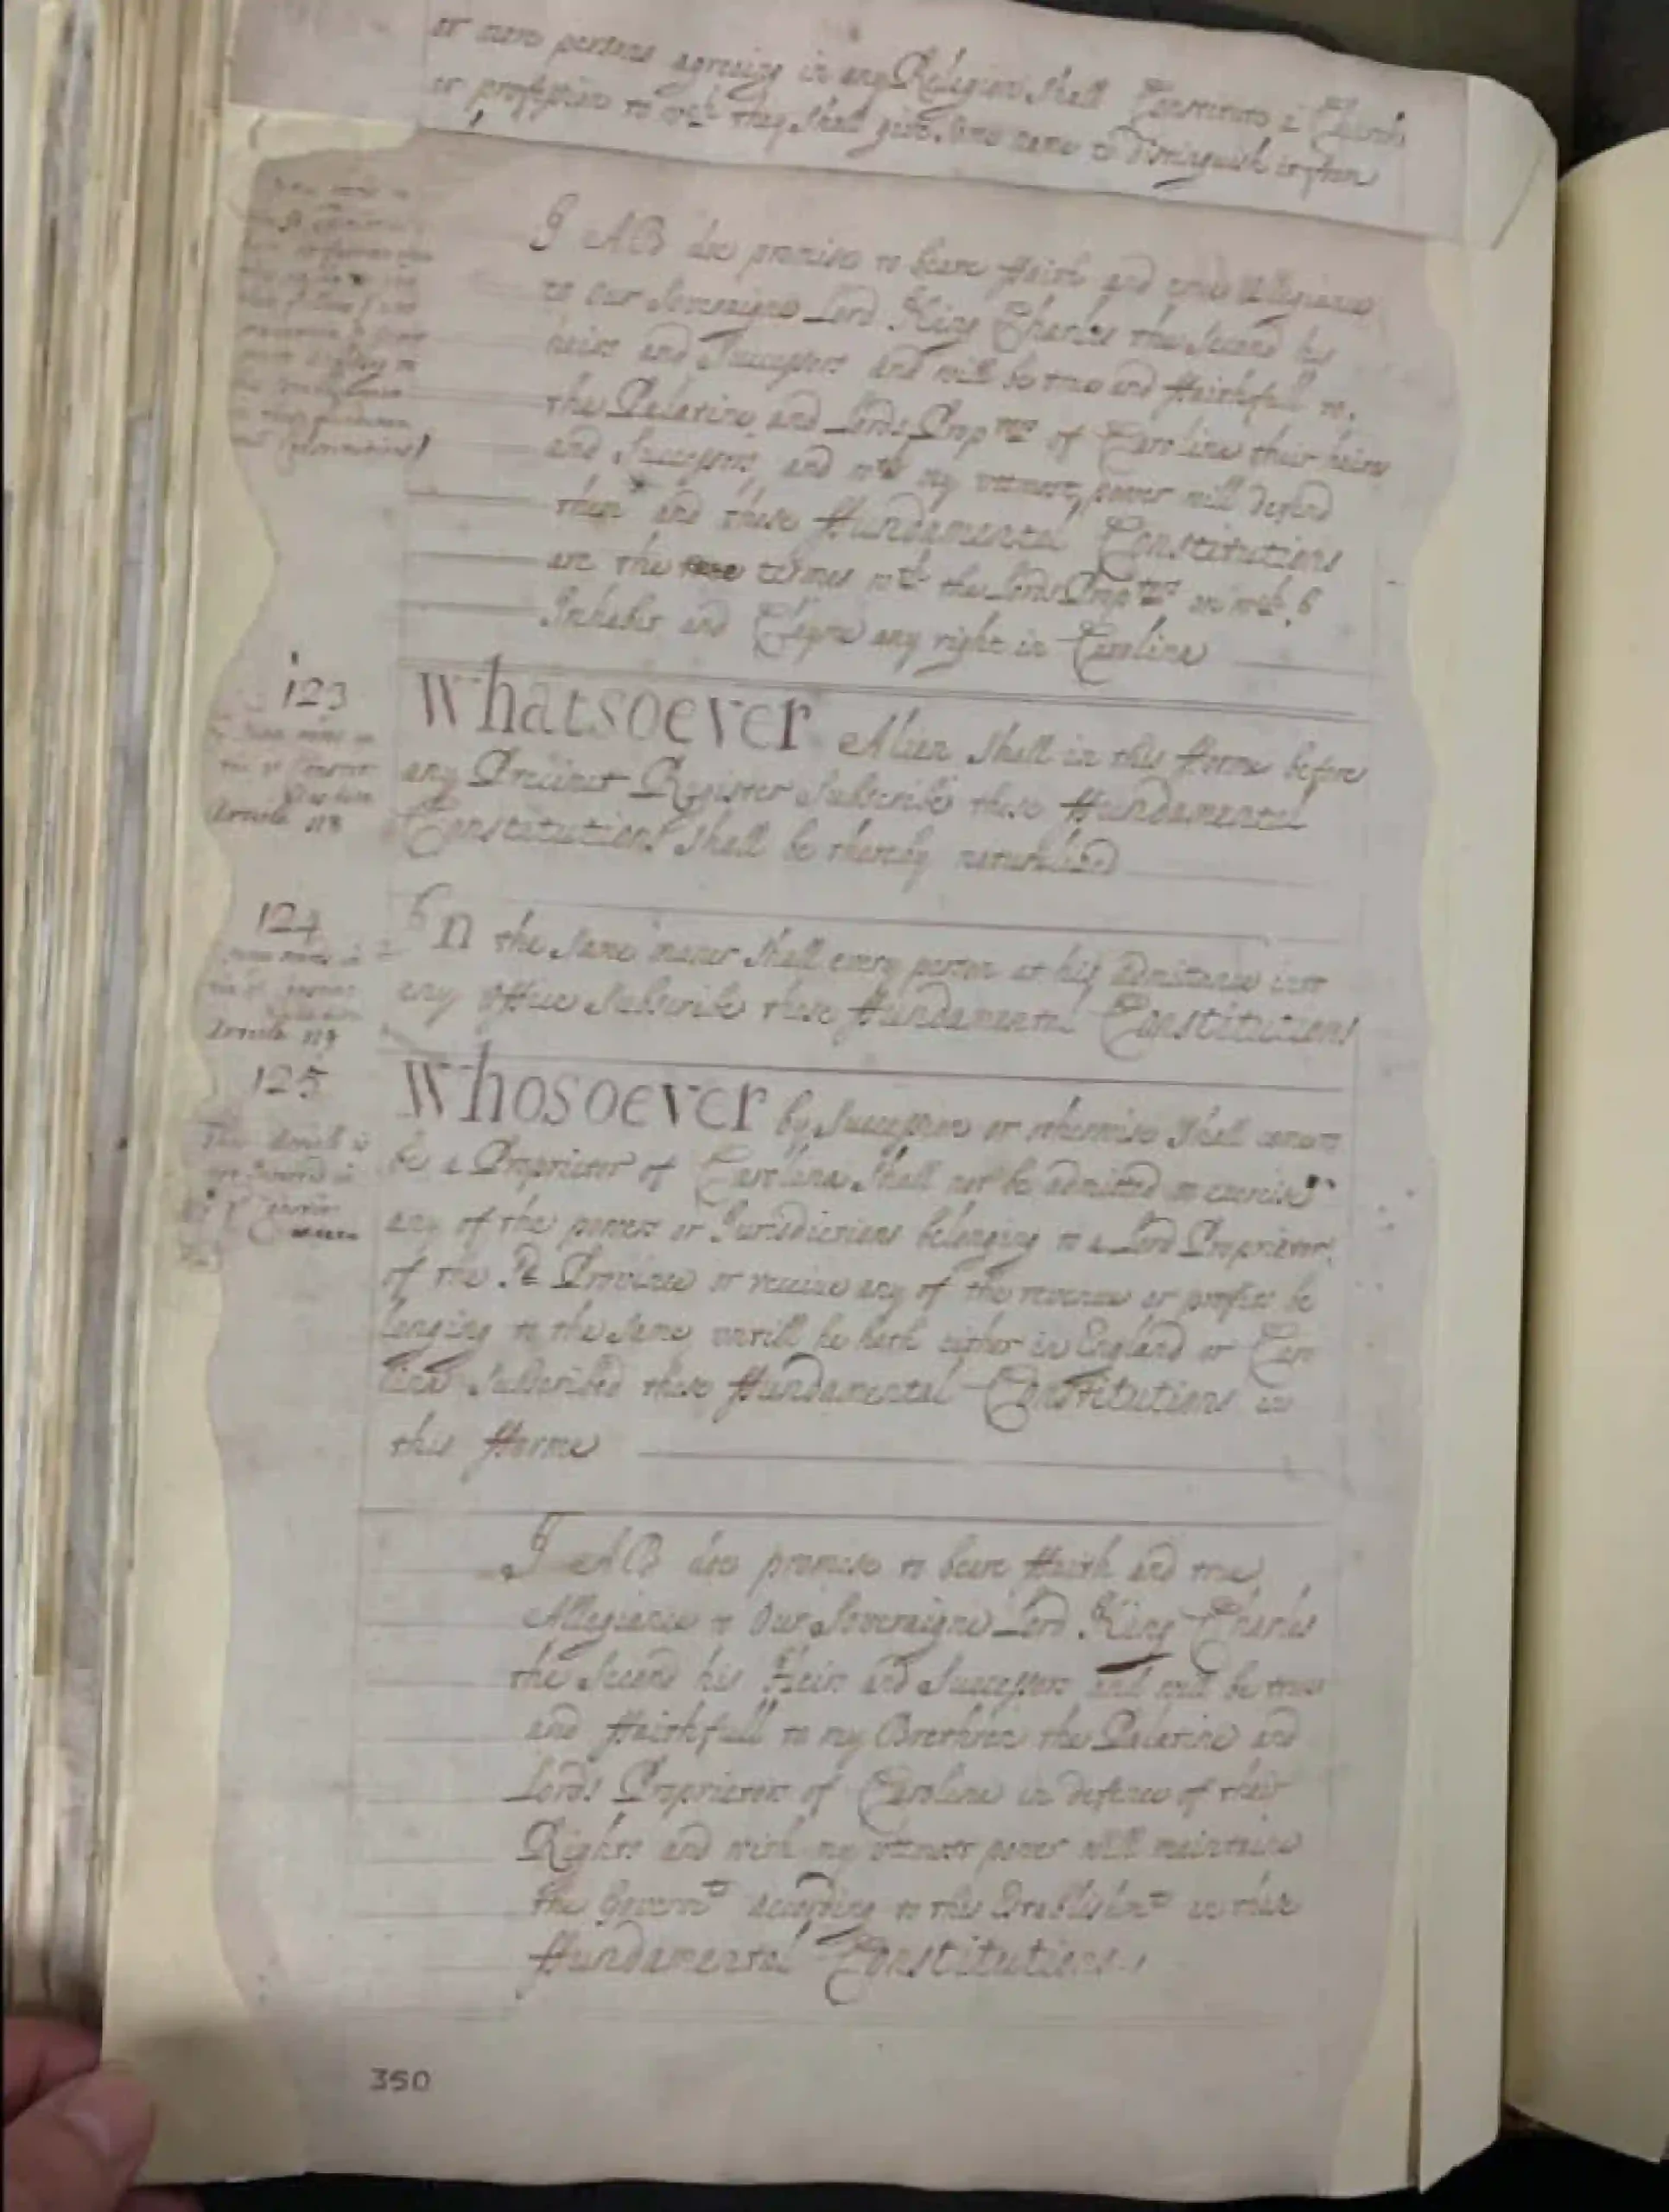 or more persons agreeing in any Religion shall Constitute a Church
or profession to wch they shall give some name to distinguish it from
I AB doe promise to beare ffaith and true Allegiance
to our Soveraigne Lord King Charles the Second his
heires and Successors and will be true and ffaithfull to
the Palatine and Lords Proptors of Carolina their heires
and Successors, and wth my uttmost power will defend
them and these ffundamental Constitutions
are the termes wth the Lords Proptors on wch I
Inhabit and Clayme any right in Carolina
123 Whatsoever Alien shall in this fforme before
any Precinct Register Subscribe these ffundamental
Constitutions shall be thereby naturalized
Article 118
124 In the same maner shall every person at his admittance into
any office Subscribe these ffundamental Constitutions
Article 119
125 Whosoever by Succession or otherwise shall come to
be a Proprietor of Carolina shall not be admitted to exercise
any of the powers or Jurisdictions belonging to a Lord Proprietor
of the sd Province or receive any of the revenue or profits be
longing to the same untill he hath either in England or Caro
lina Subscribed these ffundamental Constitutions in
this fforme
This Article is
I AB doe promise to beare ffaith and true
Allegiance to Our Soveraigne Lord King Charles
the Second his Heirs and Successors and will be true
and ffaithfull to my Brethren the Palatine and
Lords Proprietors of Carolina in defence of their
Rights and with my uttmost power will maintaine
the Governt according to this Establishmt in these
ffundamental Constitutions
350